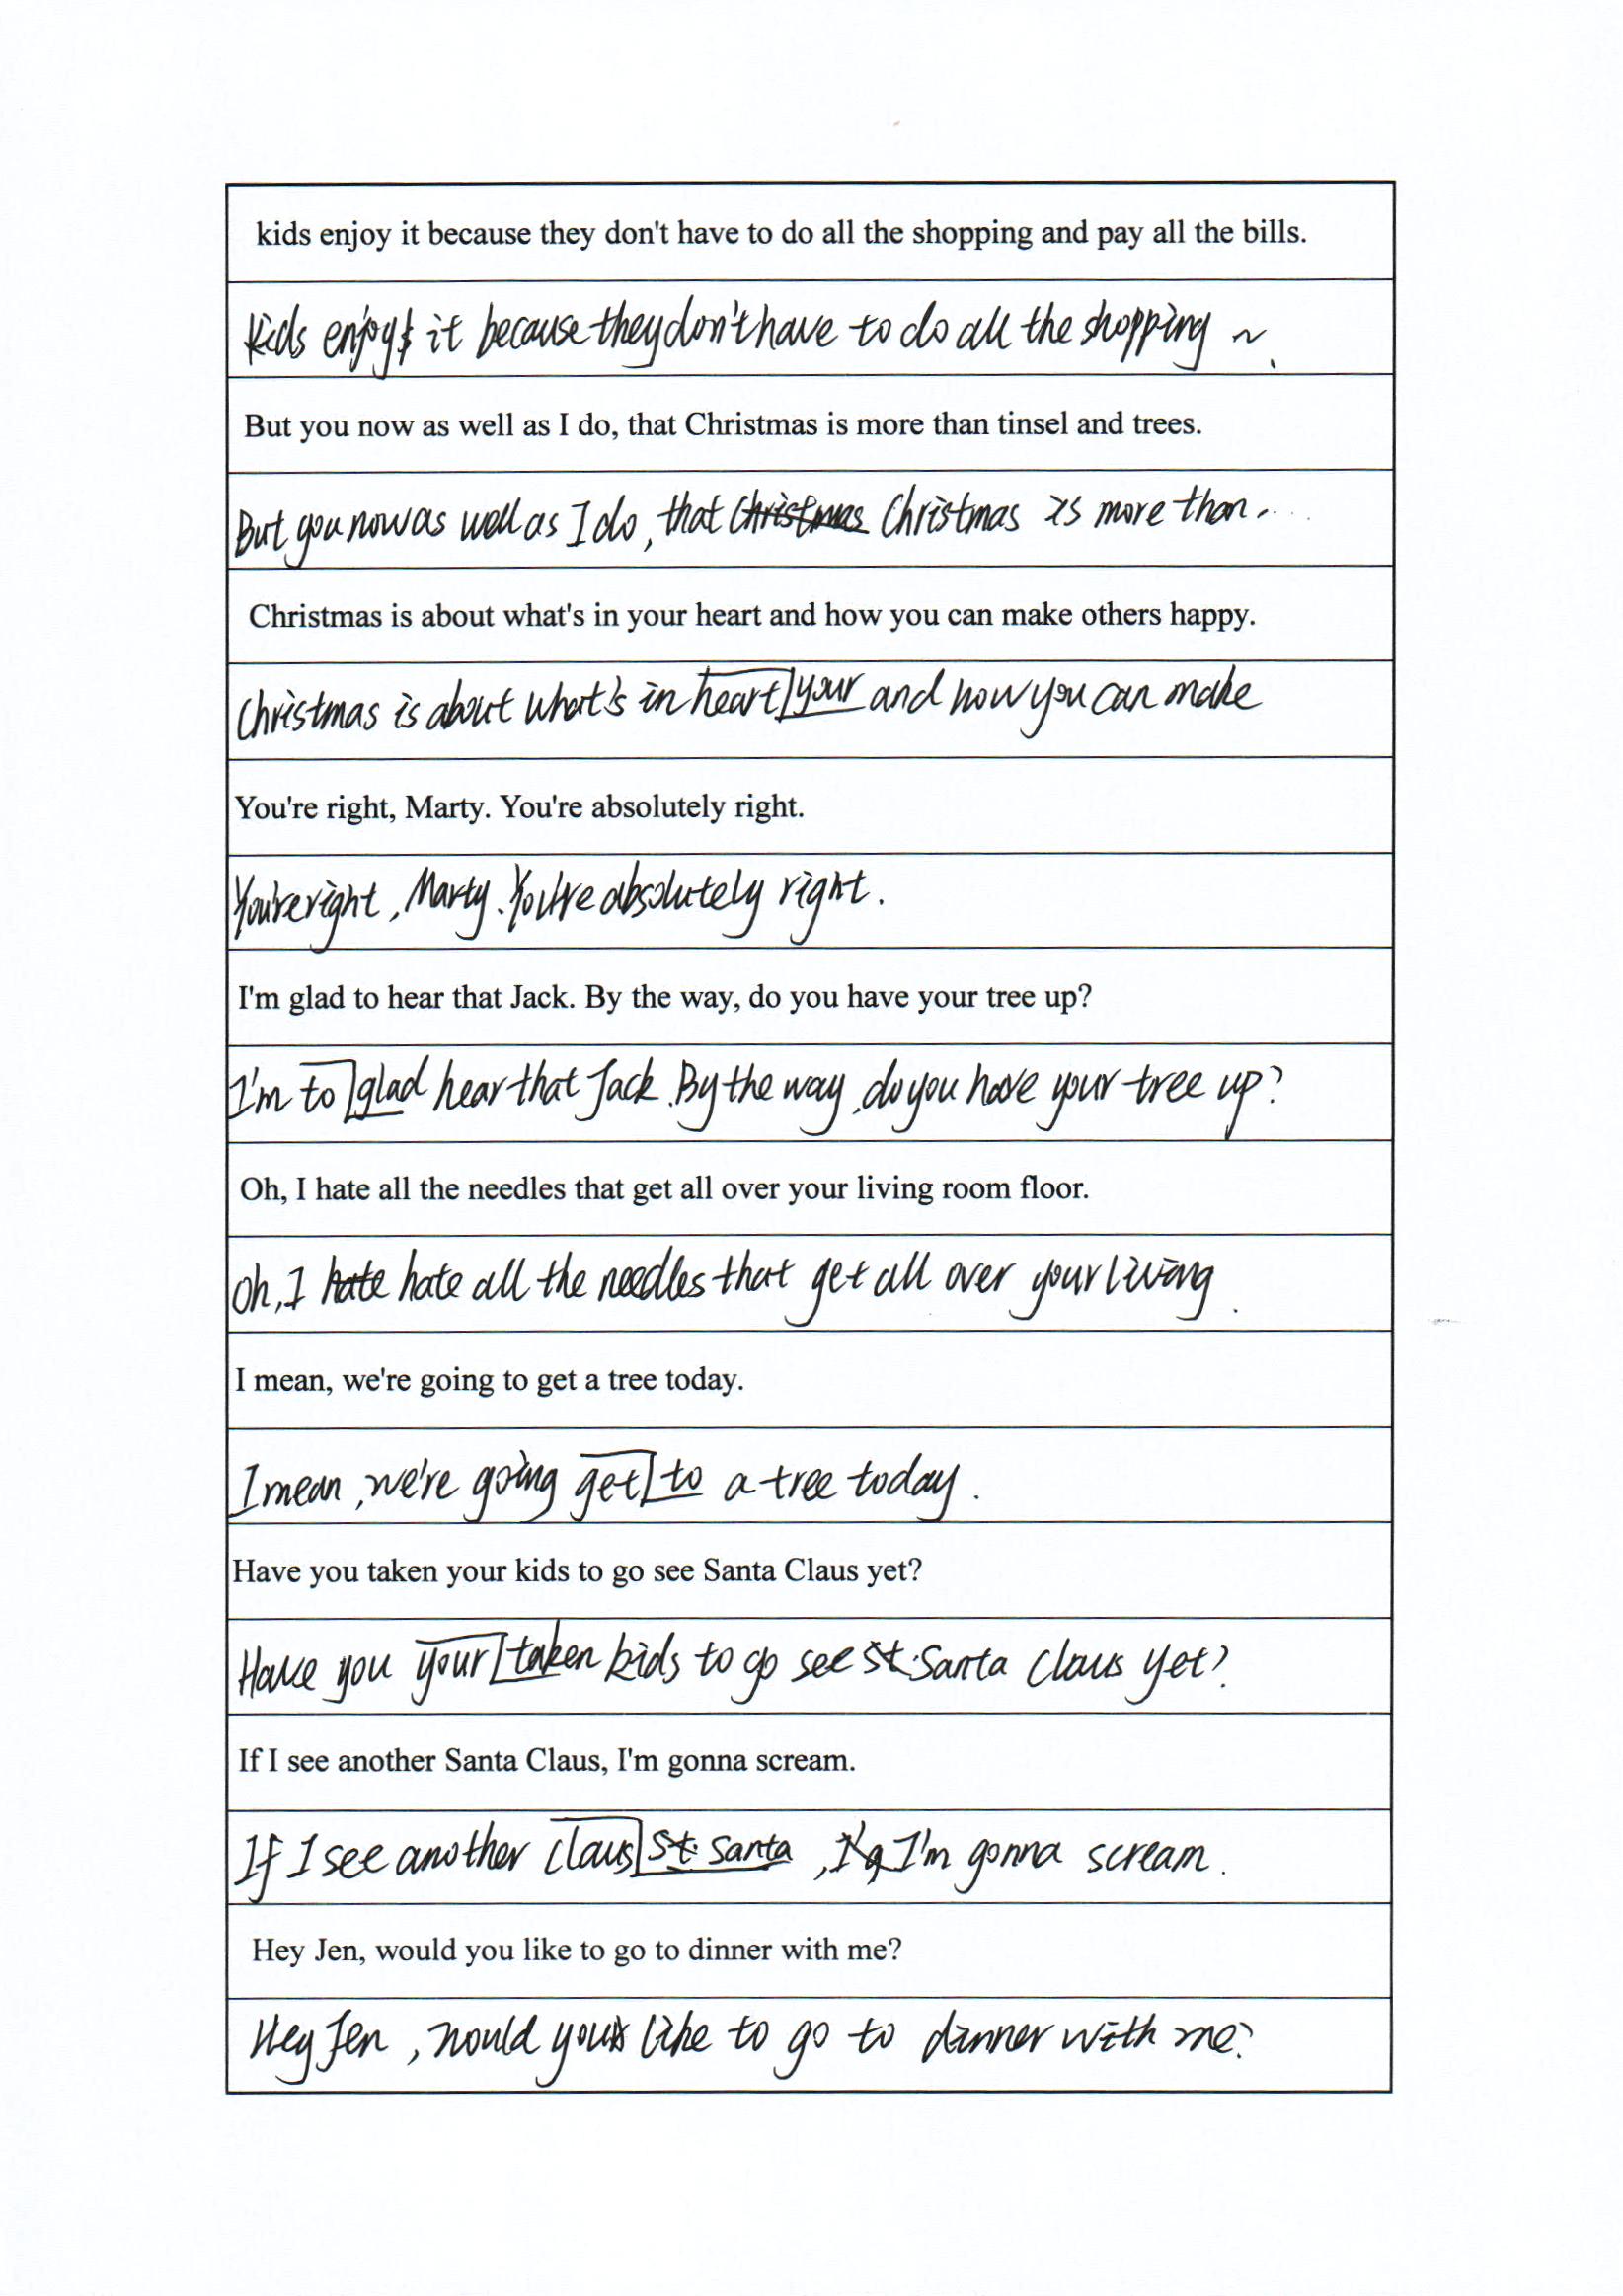 kids enjoy it because they don't have to do all the shopping and pay all the bills.
kids enjoy it because they don't have to do all the shopping ~.
But you now as well as I do, that Christmas is more than tinsel and trees.
But you now as well as I do, that Christmas Christmas is more than ....
Christmas is about what's in your heart and how you can make others happy.
Christmas is about what's in heart your and how you can make
You're right, Marty. You're absolutely right.
You're right, Marty. You're absolutely right.
I'm glad to hear that Jack. By the way, do you have your tree up?
I'm to glad hear that Jack. By the way, do you have your tree up?
Oh, I hate all the needles that get all over your living room floor.
Oh, I hate hate all the needles that get all over your living.
I mean, we're going to get a tree today.
I mean, we're going get to a tree today.
Have you taken your kids to go see Santa Claus yet?
Have you your taken kids to go see St. Santa Claus yet?
If I see another Santa Claus, I'm gonna scream.
If I see another Claus St. Santa, I'm gonna scream.
Hey Jen, would you like to go to dinner with me?
Hey Jen, would you like to go to dinner with me?